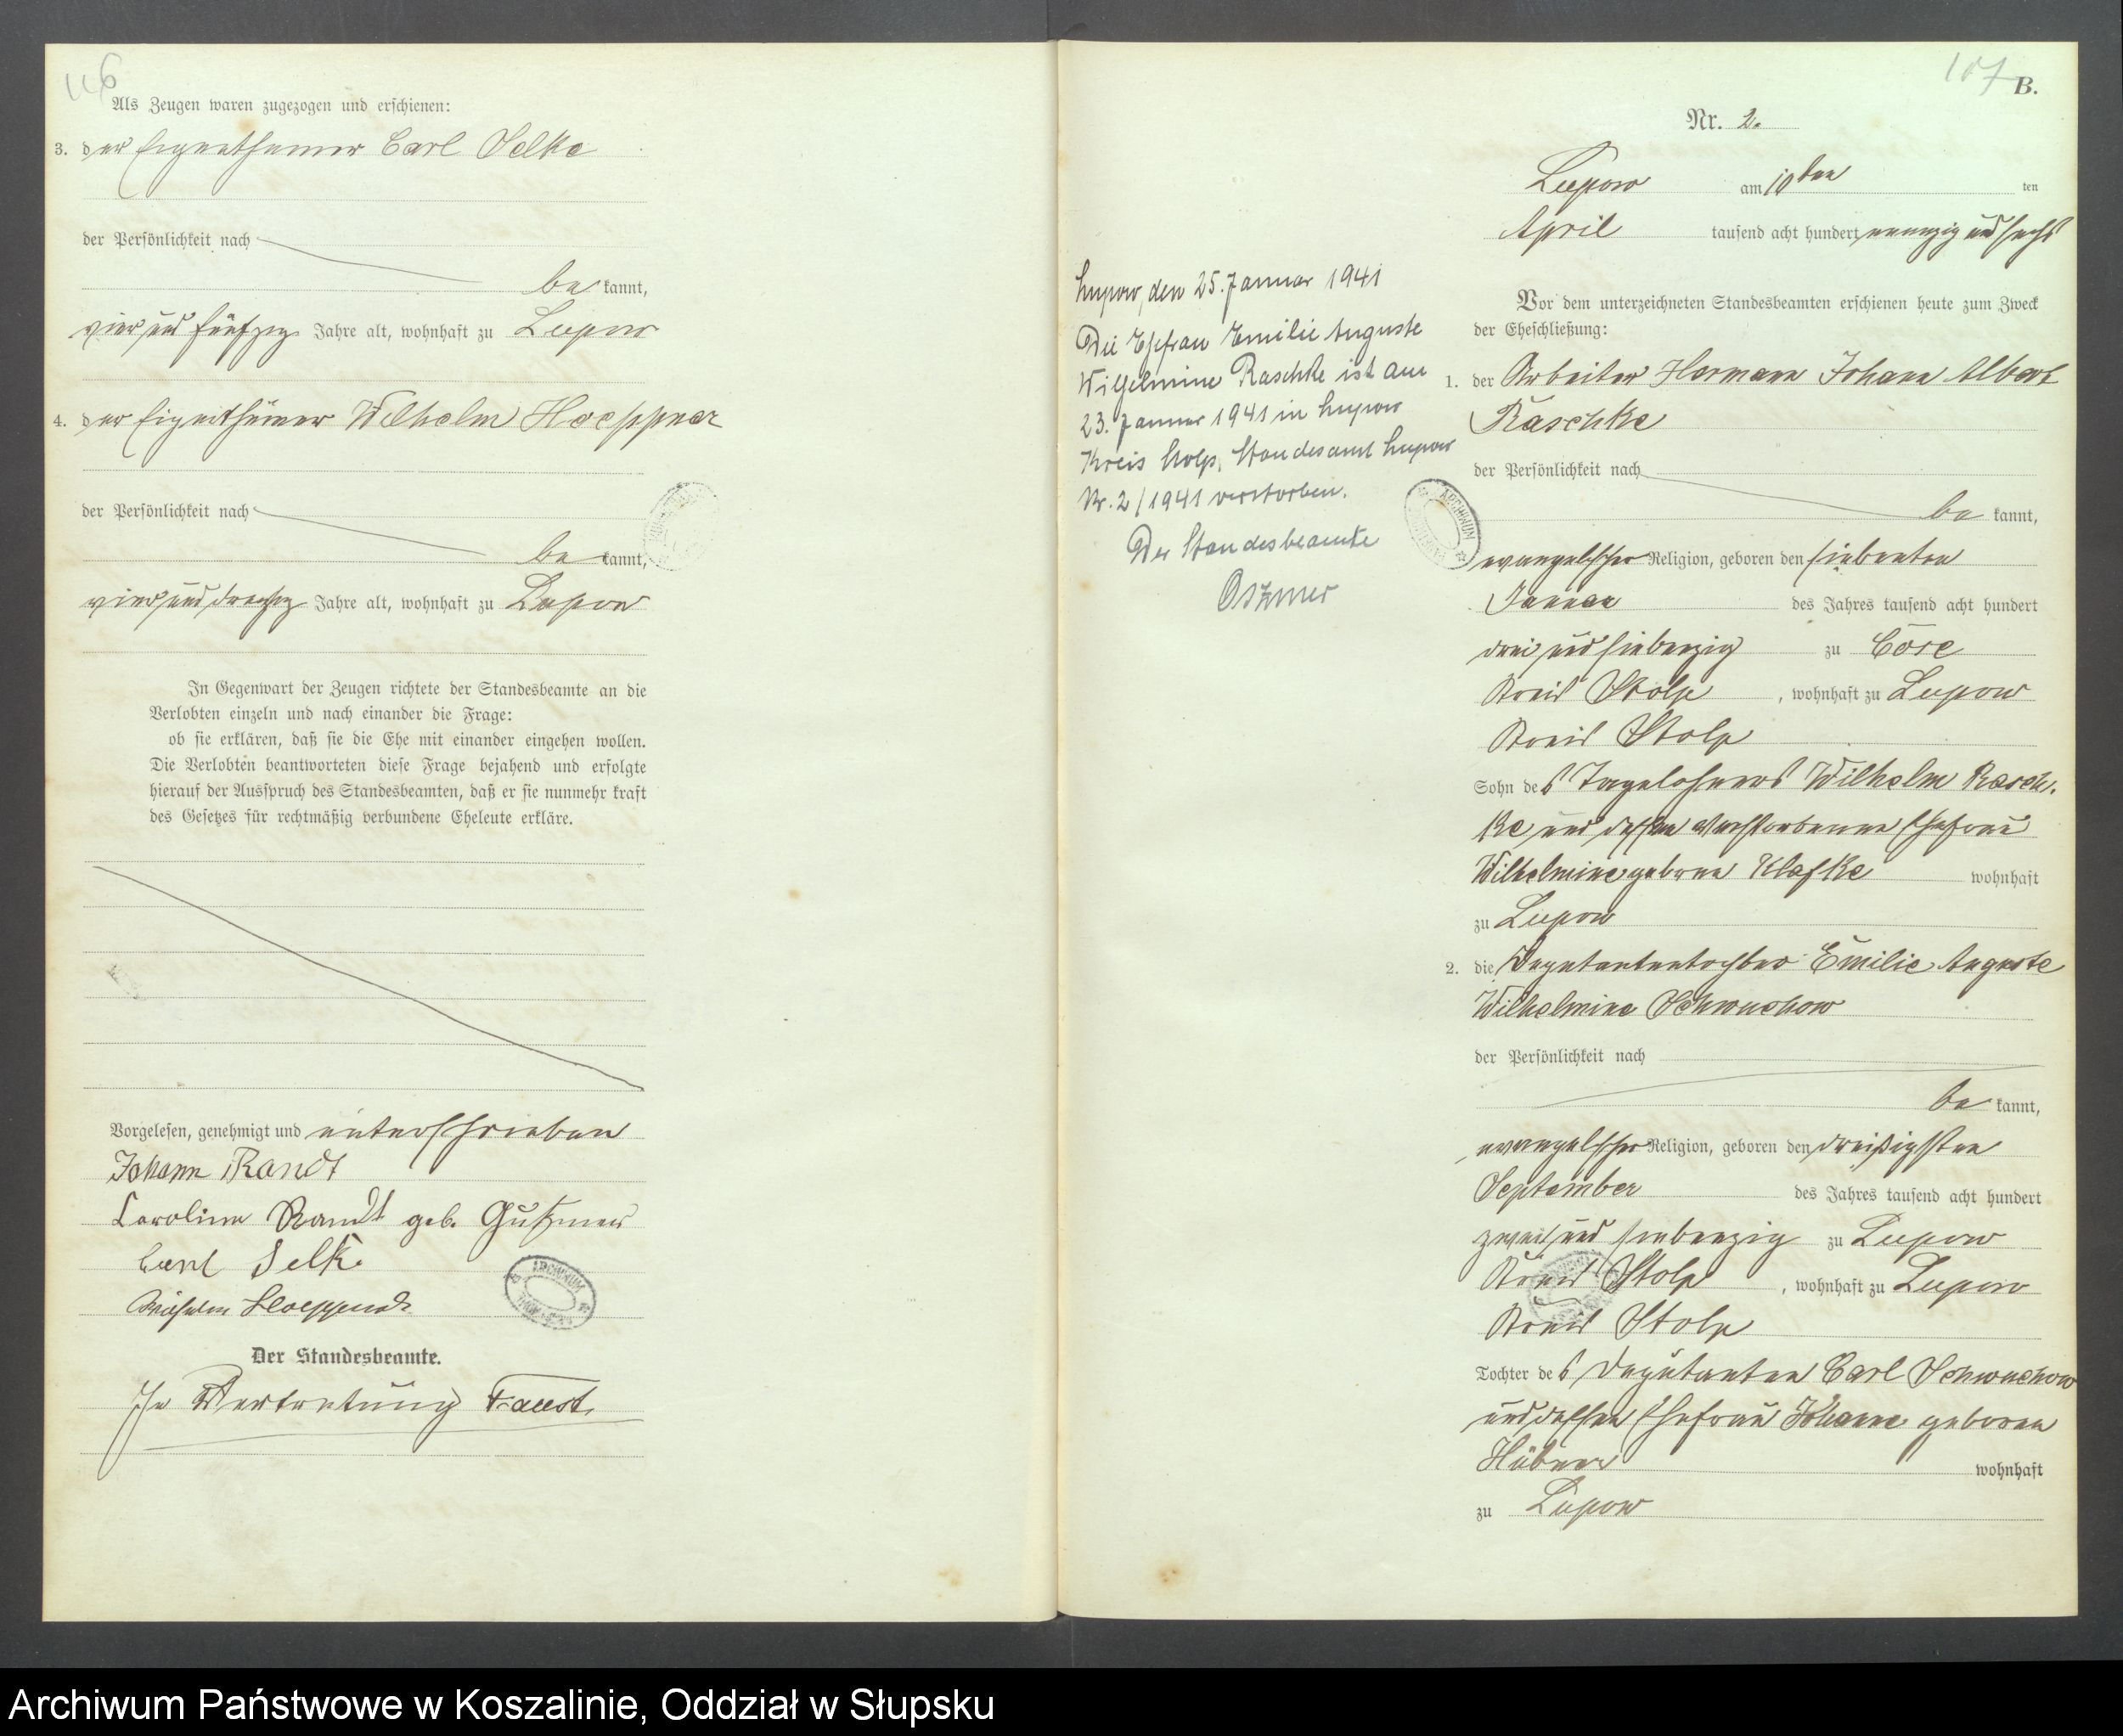 Als Zeugen waren zugezogen und erschienen:
3. der Eigenthümer Carl Selke
der Persönlichkeit nach
be kannt,
vier und fünfzig Jahre alt, wohnhaft zu Lupow
4. der Eigenthümer Wilhelm Hoeppner
der Persönlichkeit nach
be kannt,
vier und dreißig Jahre alt, wohnhaft zu Lupow
In Gegenwart der Zeugen richtete der Standesbeamte an die
Verlobten einzeln und nach einander die Frage:
ob sie erklären, daß sie die Ehe mit einander eingehen wollen.
Die Verlobten beantworteten diese Frage bejahend und erfolgte
hierauf der Ausspruch des Standesbeamten, daß er sie nunmehr kraft
des Gesetzes für rechtmäßig verbundene Eheleute erkläre.
Vorgelesen, genehmigt und unterschrieben
Johann Randt
Caroline Randt geb. Gutzmer
Carl Selke
Wilhelm Hoeppner
Der Standesbeamte.
In Vertretung Faust
B.
Nr. 2.
Lupow am 10ten ten
April tausend acht hundert neunzig und sechs
Vor dem unterzeichneten Standesbeamten erschienen heute zum Zweck
der Eheschließung:
1. der Arbeiter Hermann Johann Albert
Raschke
der Persönlichkeit nach
be kannt,
evangelischer Religion, geboren den siebenten
Januar des Jahres tausend acht hundert
drei und siebenzig zu Cose
Kreis Stolp, wohnhaft zu Lupow
Kreis Stolp
Sohn des Tagelöhners Wilhelm Rasch-
ke und dessen verstorbenen Ehefrau
Wilhelmine geborne Klafke wohnhaft
zu Lupow
2. die Deputantentochter Emilie Auguste
Wilhelmine Schwuchow
der Persönlichkeit nach
be kannt,
evangelischer Religion, geboren den dreißigsten
September des Jahres tausend acht hundert
zwei und siebenzig zu Lupow
Kreis Stolp, wohnhaft zu Lupow
Kreis Stolp
Tochter des Deputanten Carl Schwuchow
und dessen Ehefrau Johanne geboren
Hübner wohnhaft
zu Lupow
Lupow, den 25. Januar 1941
Die Ehefrau Emilie Auguste
Wilhelmine Raschke ist am
23. Januar 1941 in Lupow
Kreis Stolp, Standesamt Lupow
Nr. 2/1941 verstorben.
Der Standesbeamte
Archiwum Państwowe w Koszalinie, Oddział w Słupsku